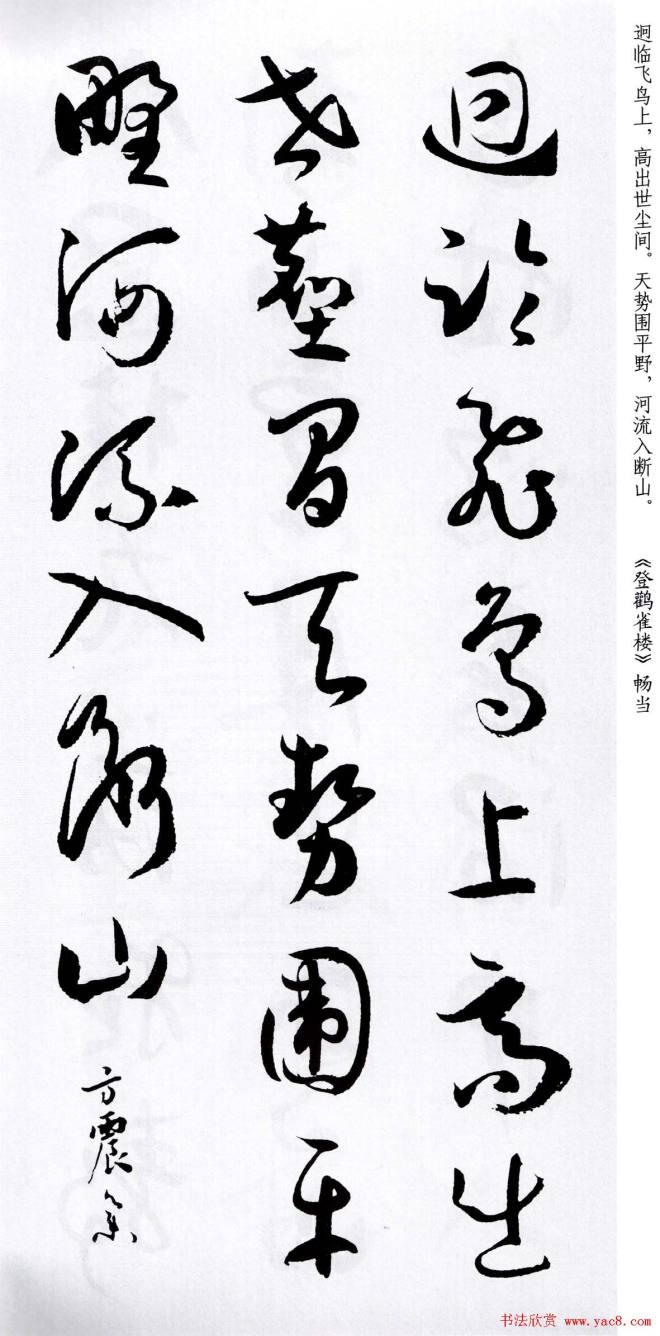 迥临飞鸟上，高出世尘间。天势围平野，河流入断山。 《登鹳雀楼》畅当
迥臨飛鳥上高出
世塵間天勢圍平
野河流入斷山
方震
书法欣赏 www.yac8.com